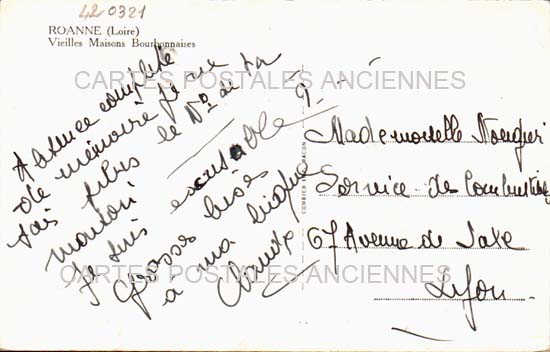 42 0321
ROANNE (Loire)
Vieilles Maisons Bourbonnaises
CARTES POSTALES ANCIENNES
Absence complète
de mémoire je ne
sais plus le No de ta
maison
Je suis excusable
Grosse bises
à ma
Claude
COMBIER IMP. MACON
Mademoiselle
Service des
67 Avenue de Saxe
Lyon
CARTES POSTALES ANCIENNES